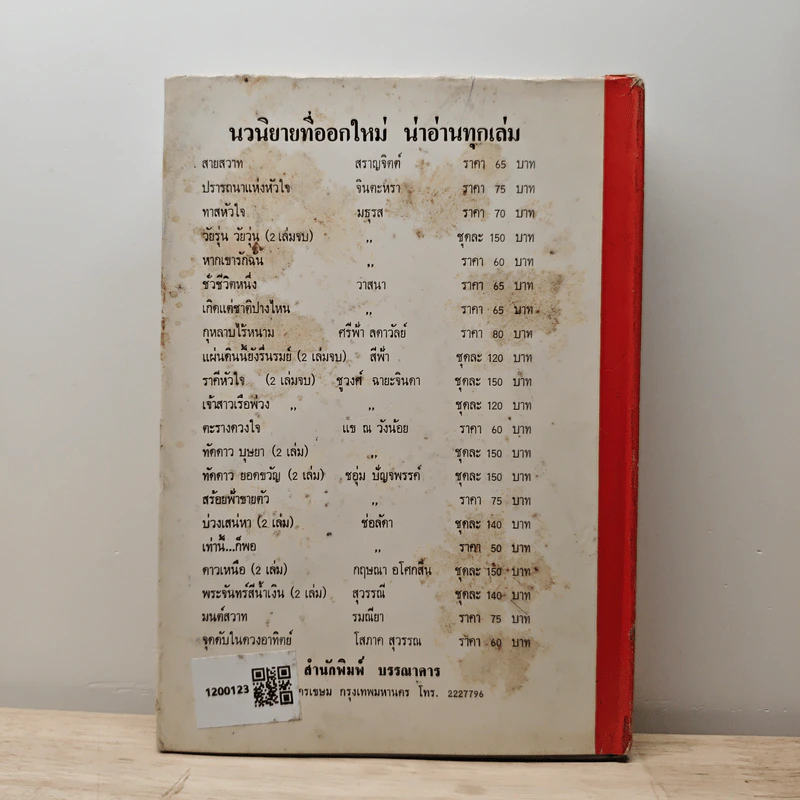 นวนิยายที่ออกใหม่ น่าอ่านทุกเล่ม
สายสวาท สราญจิตต์ ราคา 65 บาท
ปรารถนาแห่งหัวใจ จินตะหรา ราคา 75 บาท
ทาสหัวใจ มธุรส ราคา 70 บาท
วัยรุ่น วัยวุ่น (2 เล่มจบ) ,, ชุดละ 150 บาท
หากเขารักฉัน ,, ราคา 60 บาท
ชั่วชีวิตหนึ่ง วาสนา ราคา 65 บาท
เกิดแต่ชาติปางไหน ,, ราคา 65 บาท
กุหลาบไร้หนาม ศรีฟ้า ลดาวัลย์ ราคา 80 บาท
แผ่นดินนี้ยังรื่นรมย์ (2 เล่มจบ) สีฟ้า ชุดละ 120 บาท
ราคีหัวใจ (2 เล่มจบ) ชูวงศ์ ฉายะจินดา ชุดละ 150 บาท
เจ้าสาวเรือพ่วง ,, ,, ชุดละ 120 บาท
ตะรางดวงใจ แข ณ วังน้อย ราคา 60 บาท
ทัดดาว บุษยา (2 เล่ม) ชุดละ 150 บาท
ทัดดาว ยอดขวัญ (2 เล่ม) ชอุ่ม ปัญจพรรค์ ชุดละ 150 บาท
สร้อยฟ้าขายตัว ,, ราคา 75 บาท
บ่วงเสน่หา (2 เล่ม) ช่อลัดา ชุดละ 140 บาท
เท่านี้...ก็พอ ,, ราคา 50 บาท
ดาวเหนือ (2 เล่ม) กฤษณา อโศกสิน ชุดละ 150 บาท
พระจันทร์สีน้ำเงิน (2 เล่ม) สุวรรณี ชุดละ 140 บาท
มนต์สวาท รมณียา ราคา 75 บาท
จุดดับในดวงอาทิตย์ โสภาค สุวรรณ ราคา 60 บาท
สำนักพิมพ์ บรรณาคาร
1200123
กรุงเทพมหานคร โทร. 2227796